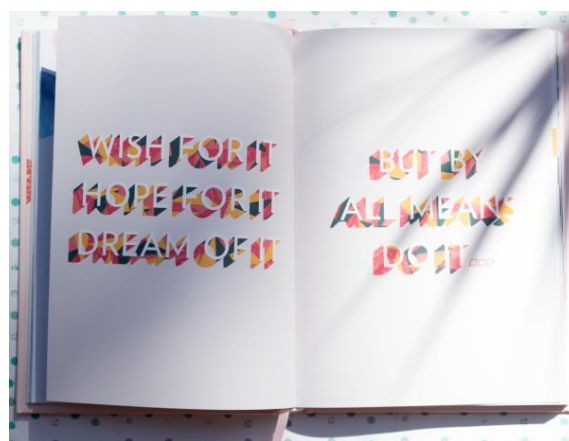 WISH FOR IT
HOPE FOR IT
DREAM OF IT
BUT BY
ALL MEANS
DO IT